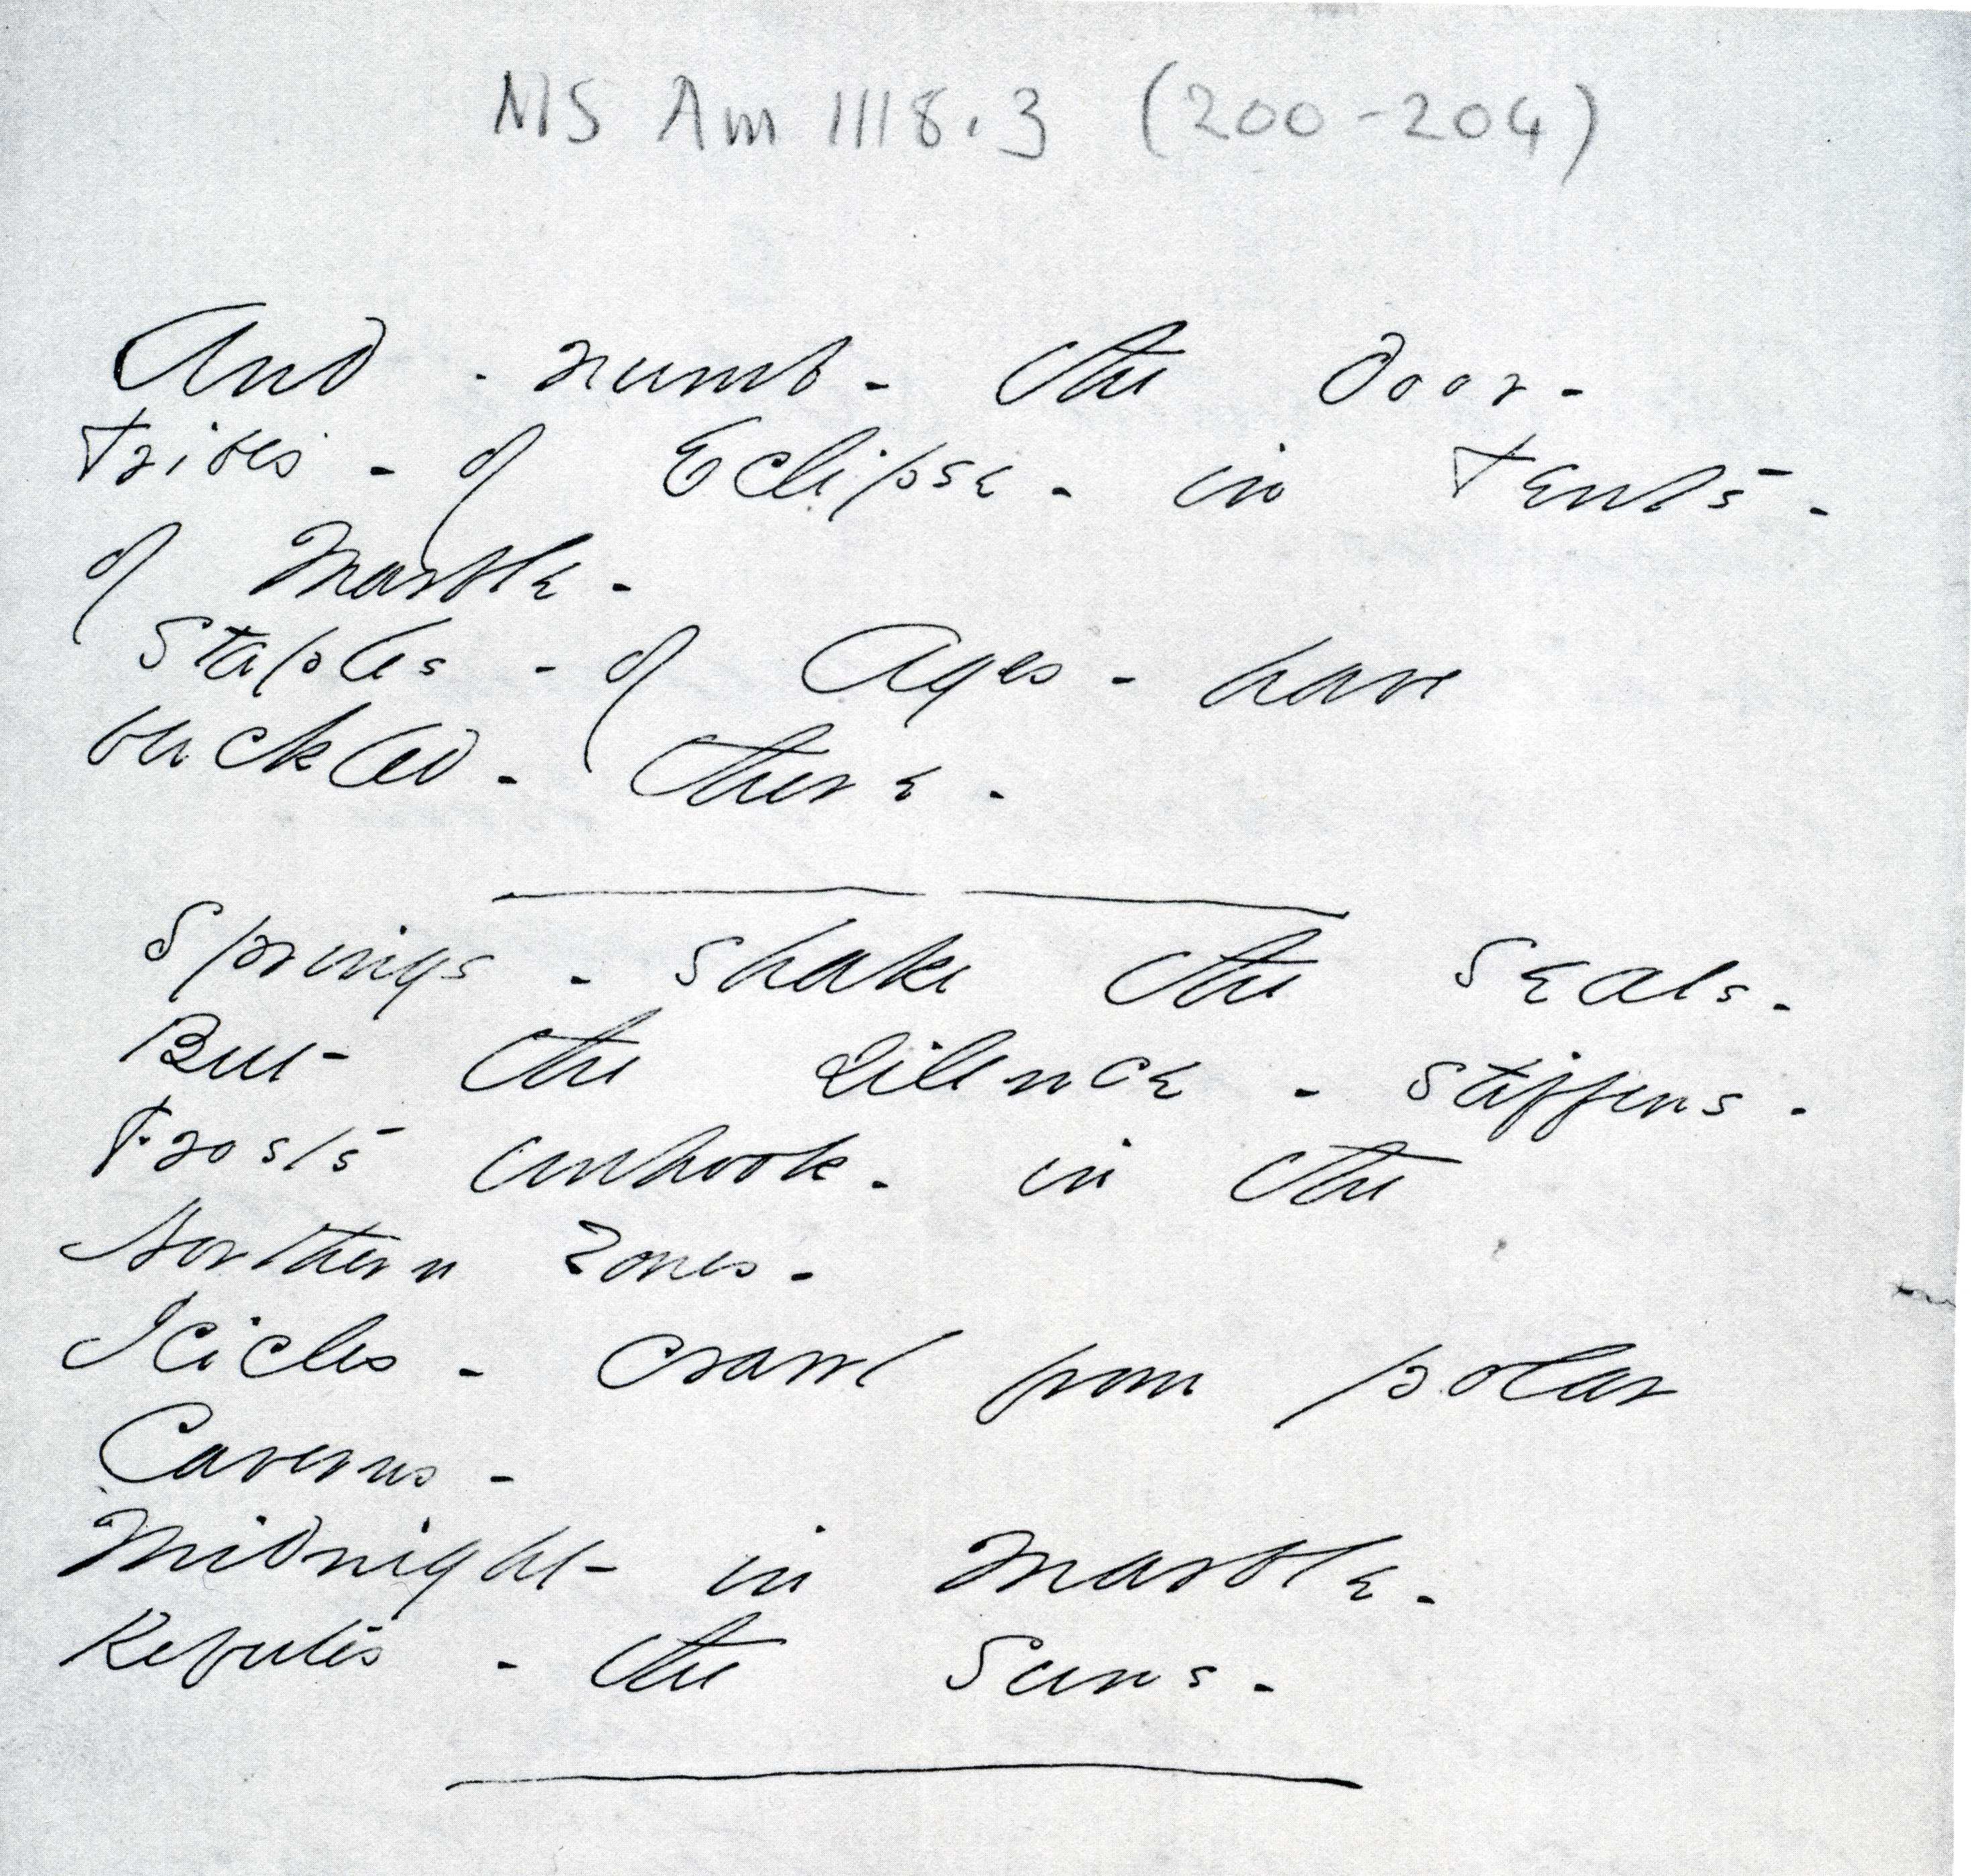 MS Am 1118.3 (200-204)
And - numb - the door -
Tribes - of Eclipse - in Tents -
of Marble -
Staples - of Ages - have
buckled - there -
Springs - shake the Seals -
But the Silence - stiffens -
Frosts unhook - in the
Northern Zones -
Icicles - crawl from polar
Caverns -
Midnight in Marble -
Refutes - the Suns -